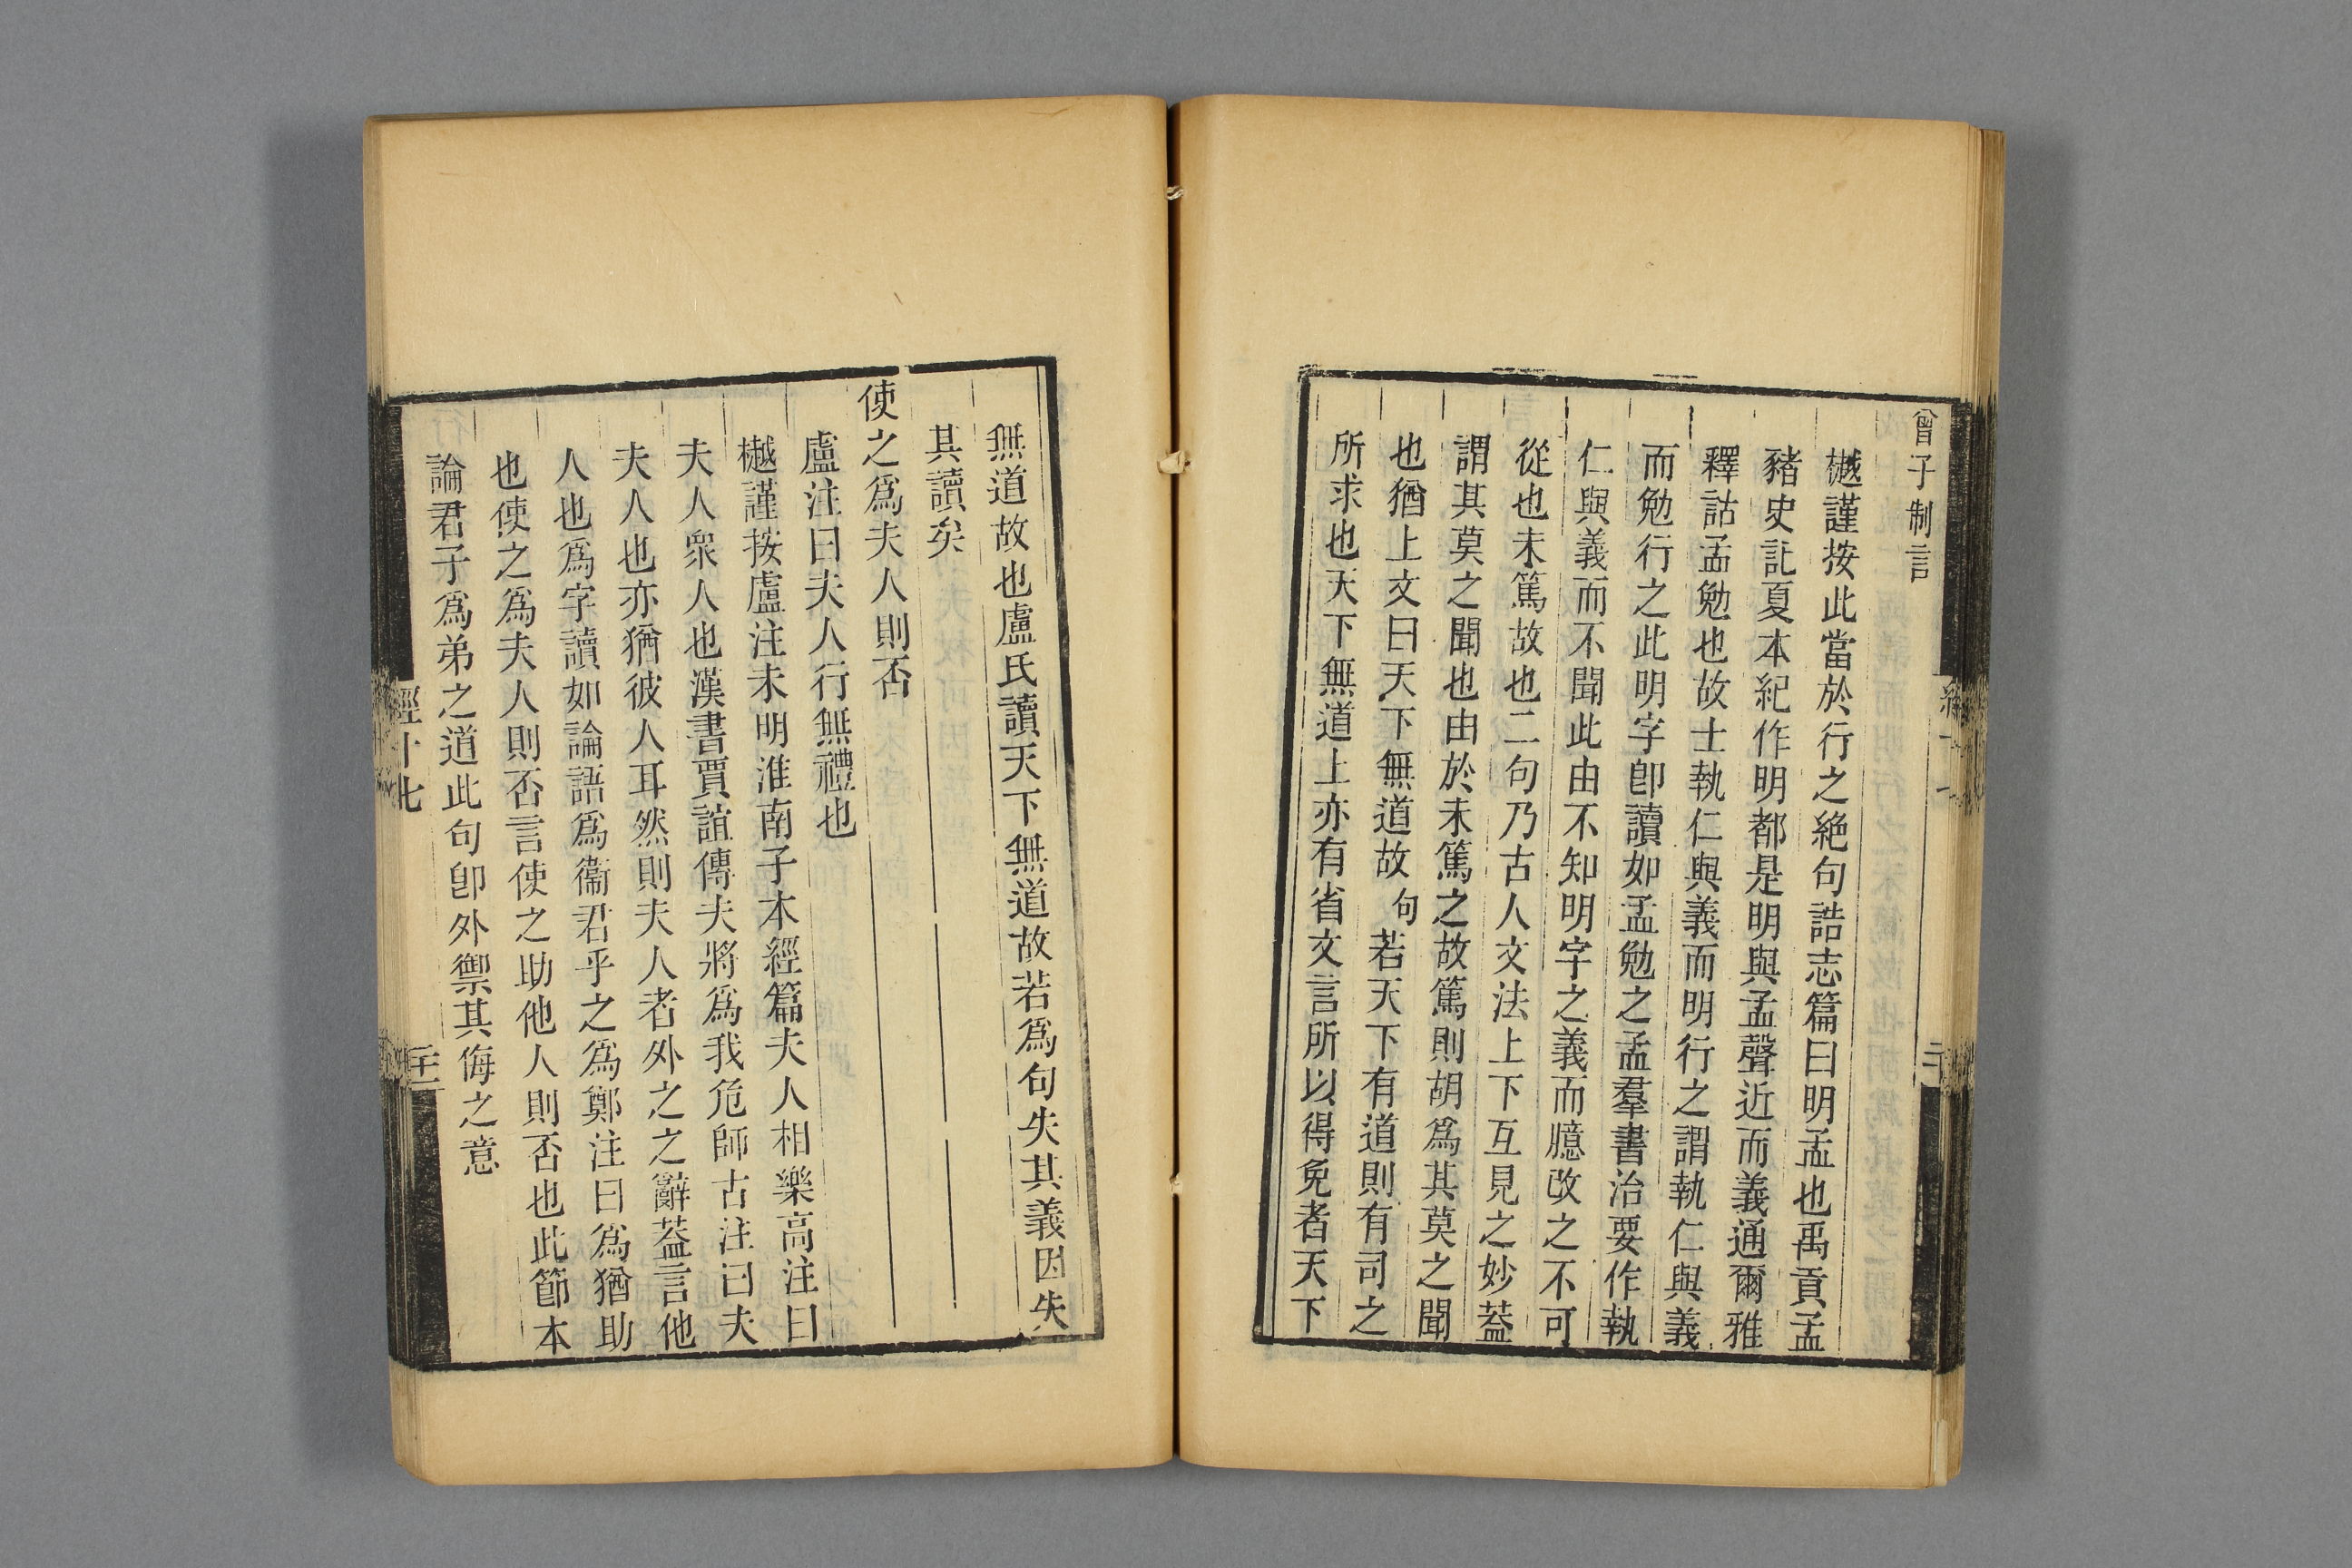 曾子制言
樾謹按此當於行之絕句誥志篇曰明孟也禹貢孟
豬史記夏本紀作明都是明與孟聲近而義通爾雅
釋詁孟勉也故士執仁與義而明行之謂執仁與義
而勉行之此明字卽讀如孟勉之孟羣書治要作執
仁與義而不聞此由不知明字之義而臆改之不可
從也未篤故也二句乃古人文法上下互見之妙蓋
謂其莫之聞也由於未篤之故篤則胡爲其莫之聞
也猶上文曰天下無道故句若天下有道則有司之
所求也天下無道上亦有省文言所以得免者天下
無道故也盧氏讀天下無道故若爲句失其義因失
其讀矣
使之爲夫人則否
盧注曰夫人行無禮也
樾謹按盧注未明淮南子本經篇夫人相樂高注曰
夫人衆人也漢書賈誼傳夫將爲我危師古注曰夫
夫人也亦猶彼人耳然則夫人者外之之辭蓋言他
人也爲字讀如論語爲衞君乎之爲鄭注曰爲猶助
也使之爲夫人則否言使之助他人則否也此節本
論君子爲弟之道此句卽外禦其侮之意
經十七
二十一